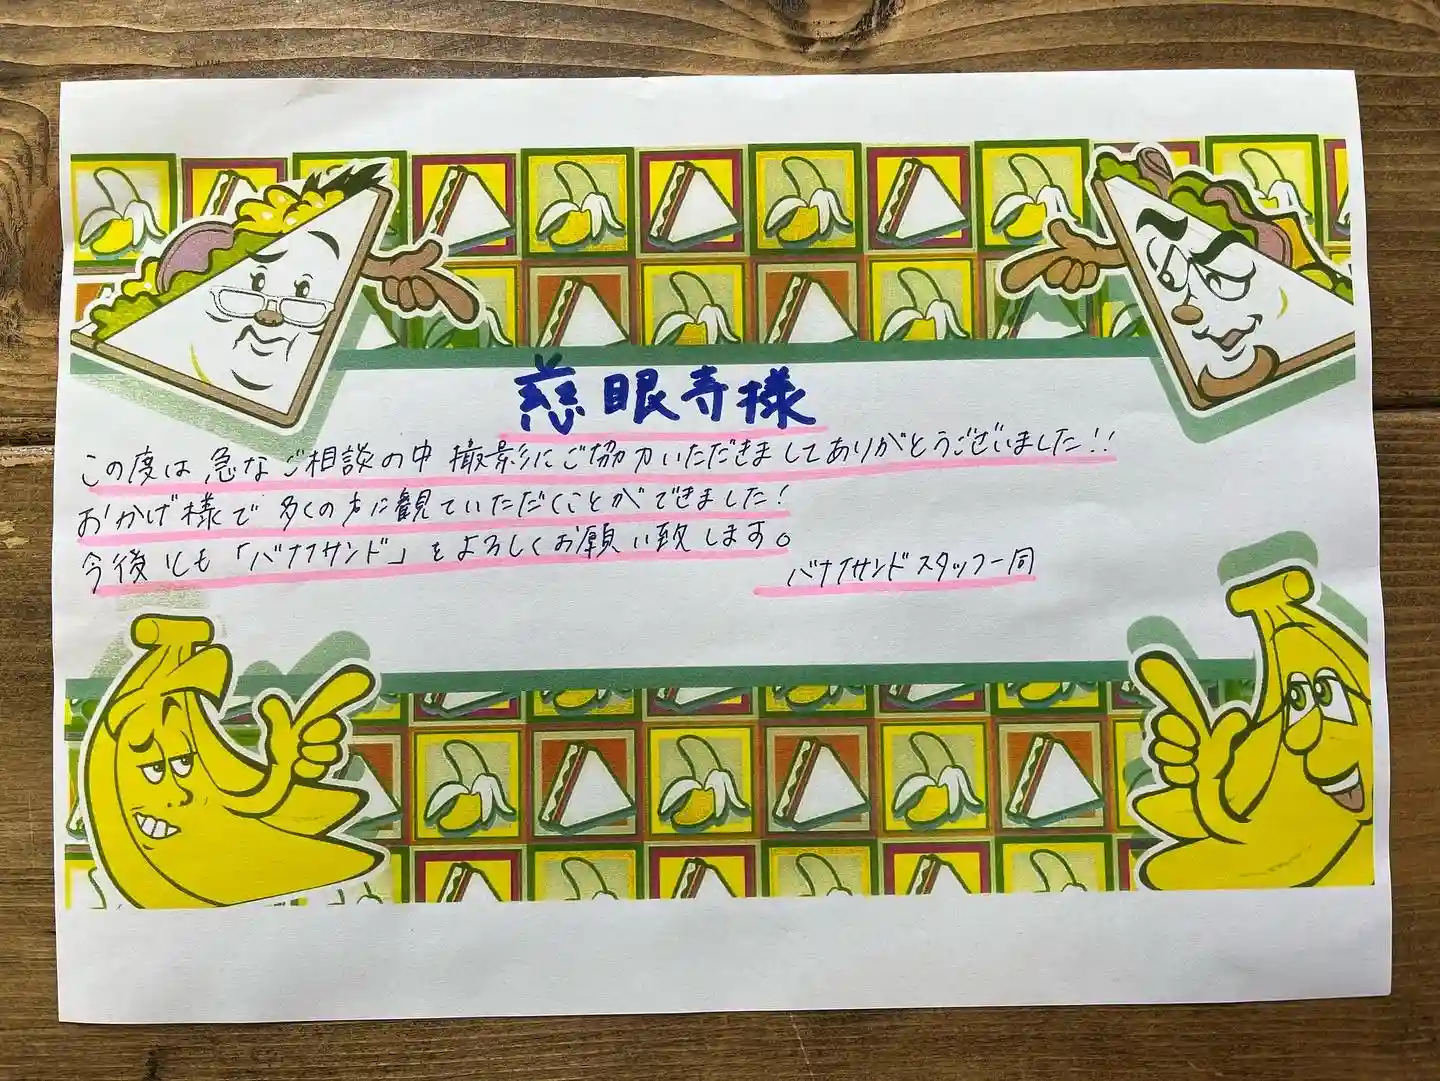 慈眼寺様
この度は急なご相談の中撮影にご協力いただきましてありがとうございました!!
おかげ様で多くの方に観ていただくことができました!
今後とも「バナナサンド」をよろしくお願い致します。
バナナサンドスタッフ一同